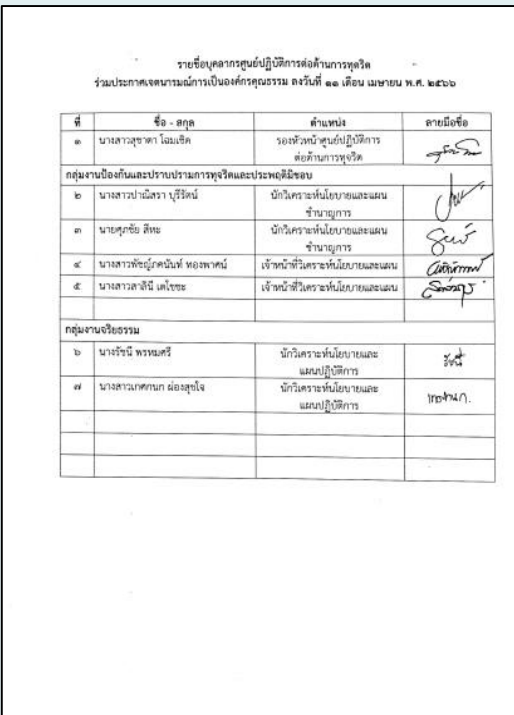 รายชื่อบุคลากรศูนย์ปฏิบัติการต่อต้านการทุจริต
ร่วมประกาศเจตนารมณ์การเป็นองค์กรคุณธรรม ลงวันที่ ๑๑ เดือน เมษายน พ.ศ. ๒๕๖๖
ที่ ชื่อ - สกุล ตำแหน่ง ลายมือชื่อ
๑ นางสาวสุชาดา โฉมเชิด รองหัวหน้าศูนย์ปฏิบัติการ
ต่อต้านการทุจริต
กลุ่มงานป้องกันและปราบปรามการทุจริตและประพฤติมิชอบ
๒ นางสาวปาณิสรา บุรีรัตน์ นักวิเคราะห์นโยบายและแผน
ชำนาญการ
๓ นายศุภชัย สีหะ นักวิเคราะห์นโยบายและแผน
ชำนาญการ
๔ นางสาวพัชญ์ภคนันท์ ทองพาศน์ เจ้าหน้าที่วิเคราะห์นโยบายและแผน
๕ นางสาวสาลินี เตโชชะ เจ้าหน้าที่วิเคราะห์นโยบายและแผน
กลุ่มงานจริยธรรม
๖ นางรัชนี พรหมศรี นักวิเคราะห์นโยบายและ
แผนปฏิบัติการ รัชนี
๗ นางสาวเกศกนก ผ่องสุขใจ นักวิเคราะห์นโยบายและ
แผนปฏิบัติการ เกศกนก.